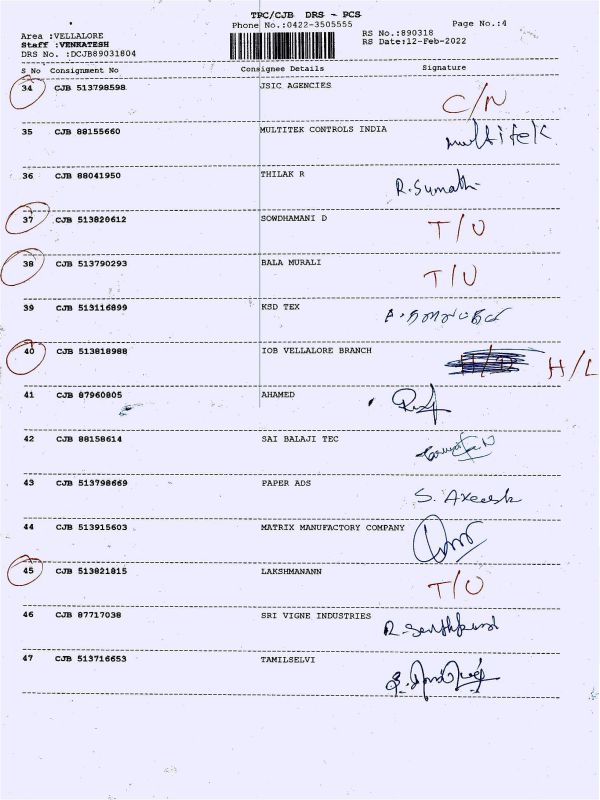 TPC/CJB DRS - PCS
Phone No.:0422-3505555
Page No.:4
Area :VELLALORE
RS No.:890318
Staff :VENKATESH
RS Date:12-Feb-2022
DRS No. :DCJB89031804
S No Consignment No Consignee Details Signature
34 CJB 513798598 JSIC AGENCIES C/N
35 CJB 88155660 MULTITEK CONTROLS INDIA multitek
36 CJB 88041950 THILAK R R. Sumathi
37 CJB 513820612 SOWDHAMANI D T/U
38 CJB 513790293 BALA MURALI T/U
39 CJB 513116899 KSD TEX
40 CJB 513818988 IOB VELLALORE BRANCH H/L
41 CJB 87960805 AHAMED
42 CJB 88158614 SAI BALAJI TEC
43 CJB 513798669 PAPER ADS
44 CJB 513915603 MATRIX MANUFACTORY COMPANY
45 CJB 513821815 LAKSHMANANN T/U
46 CJB 87717038 SRI VIGNE INDUSTRIES
47 CJB 513716653 TAMILSELVI